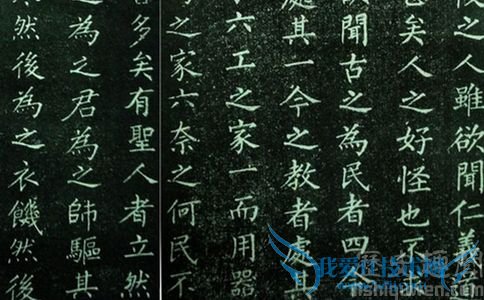 後之人雖欲聞仁義
矣人之好怪也不
欲聞古之為民者四今
處其一今之教者處其
六工之家一而用器
之家六奈之何民不
多矣有聖人者立然
之為之君為之師驅其
然後為之衣饑然後
我爱技术网